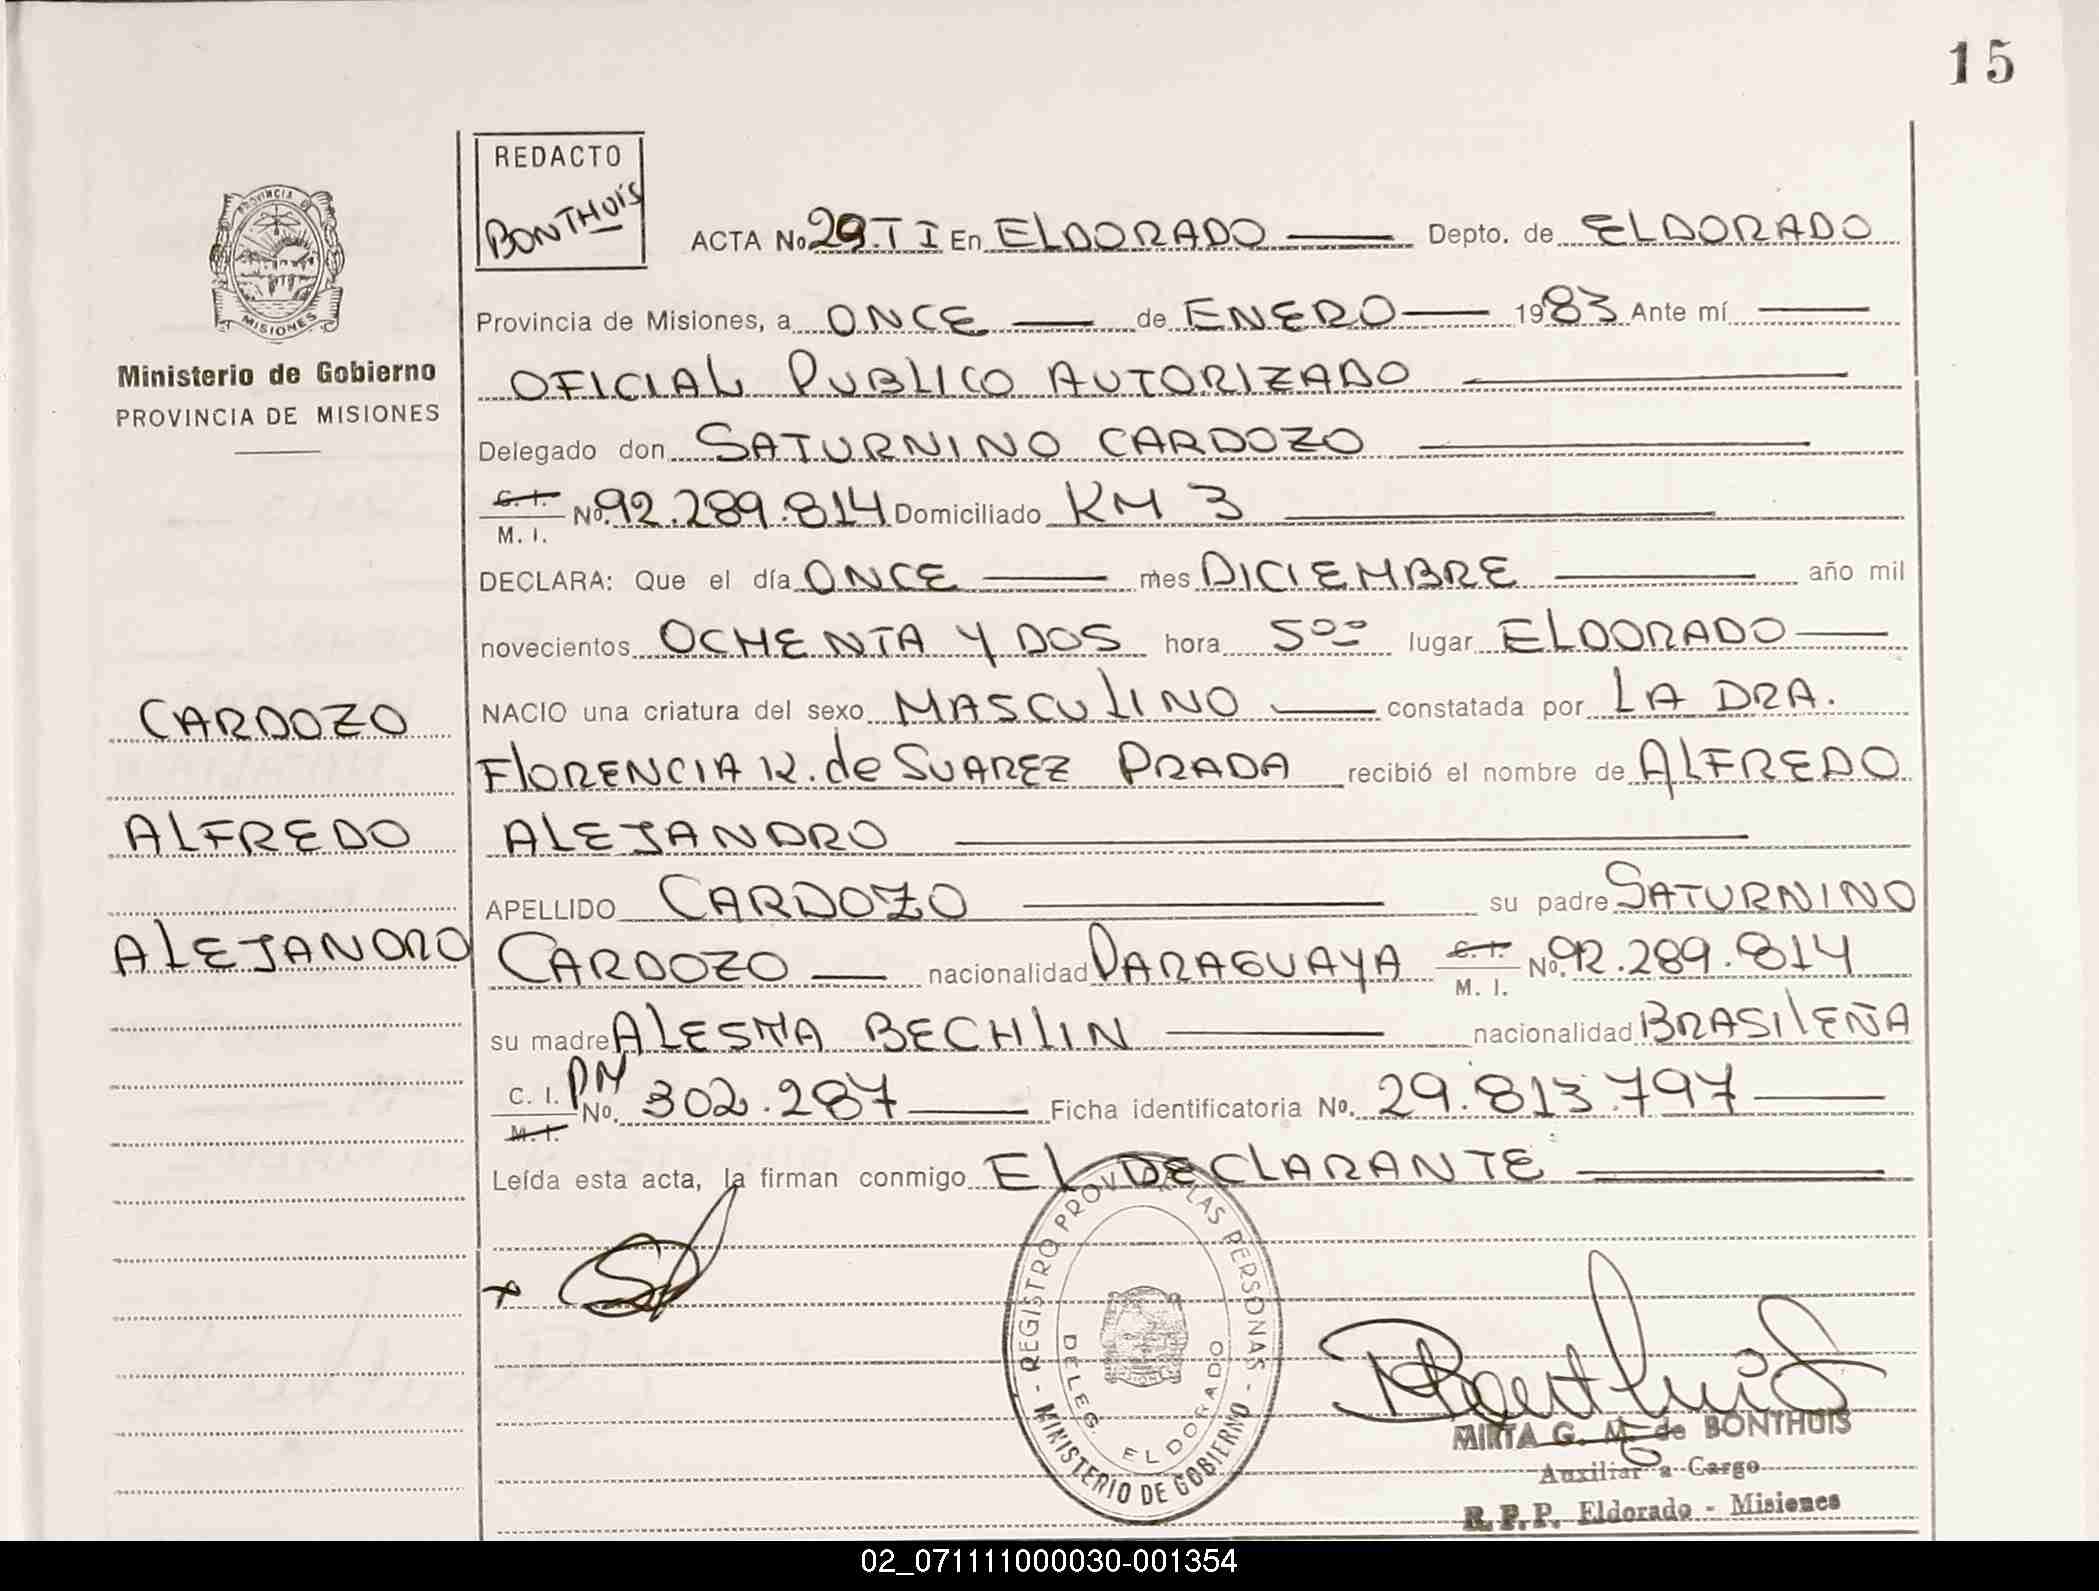 15
REDACTO
BONTHUIS
PROVINCIA DE
MISIONES
Ministerio de Gobierno
PROVINCIA DE MISIONES
ACTA No. 29.T I En ELDORADO Depto. de ELDORADO
Provincia de Misiones, a ONCE de ENERO 1983 Ante mí
OFICIAL PUBLICO AUTORIZADO
Delegado don SATURNINO CARDOZO
C. I.
M. I. No. 92.289.814 Domiciliado KM 3
DECLARA: Que el día ONCE mes DICIEMBRE año mil
novecientos OCHENTA Y DOS hora 5ºº lugar ELDORADO
NACIO una criatura del sexo MASCULINO constatada por LA DRA.
FLORENCIA K. de SUAREZ PRADA recibió el nombre de ALFREDO
ALEJANDRO
APELLIDO CARDOZO su padre SATURNINO
CARDOZO nacionalidad PARAGUAYA C. I.
M. I. No. 92.289.814
su madre BECHLIN nacionalidad BRASILEÑA
C. I.
M. I. No. 302.287 Ficha identificatoria No. 29.813.797
Leída esta acta, la firman conmigo EL DECLARANTE
CARDOZO
ALFREDO
ALEJANDRO
- REGISTRO PROV. LAS PERSONAS -
MINISTERIO DE GOBIERNO
DELEG. ELDORADO
Bonthuis
MIRTA G. M. de BONTHUIS
Auxiliar a Cargo
R. P. P. Eldorado - Misiones
02_071111000030-001354